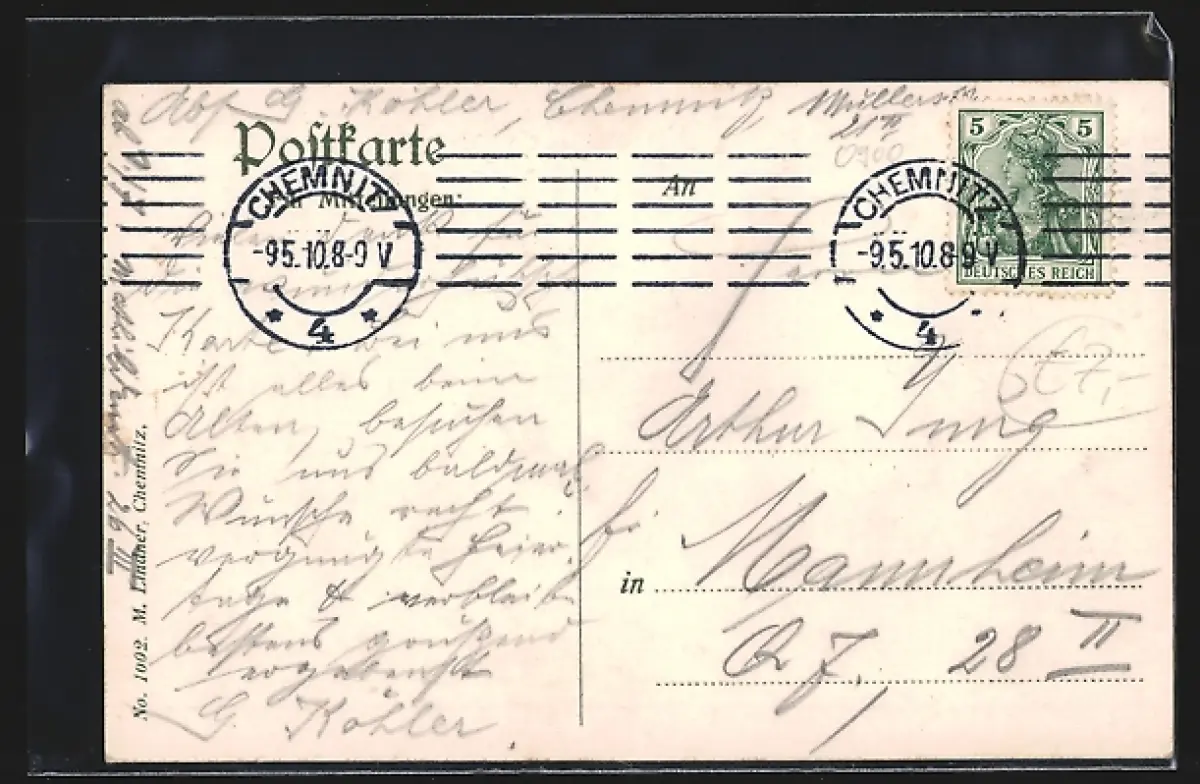 Abs. G. Köhler, Chemnitz, Müllerstr.
21 II
Postkarte
Mitteilungen:
CHEMNITZ
-9.5.10.8-9 V
* 4 *
Vielen Dank für
Karte, bei uns
ist alles beim
Alten, besuchen
Sie uns baldmal
Wünsche recht
vergnügte Feier-
tage & verbleibe
bestens grüßend
ergebenst
G. Köhler
No. 1002. M. Lindner, Chemnitz.
26 III
An
5 5
DEUTSCHES REICH
CHEMNITZ
-9.5.10.8-9 V
* 4
€7,-
Arthur Jung
in Mannheim
Q 7, 28 II